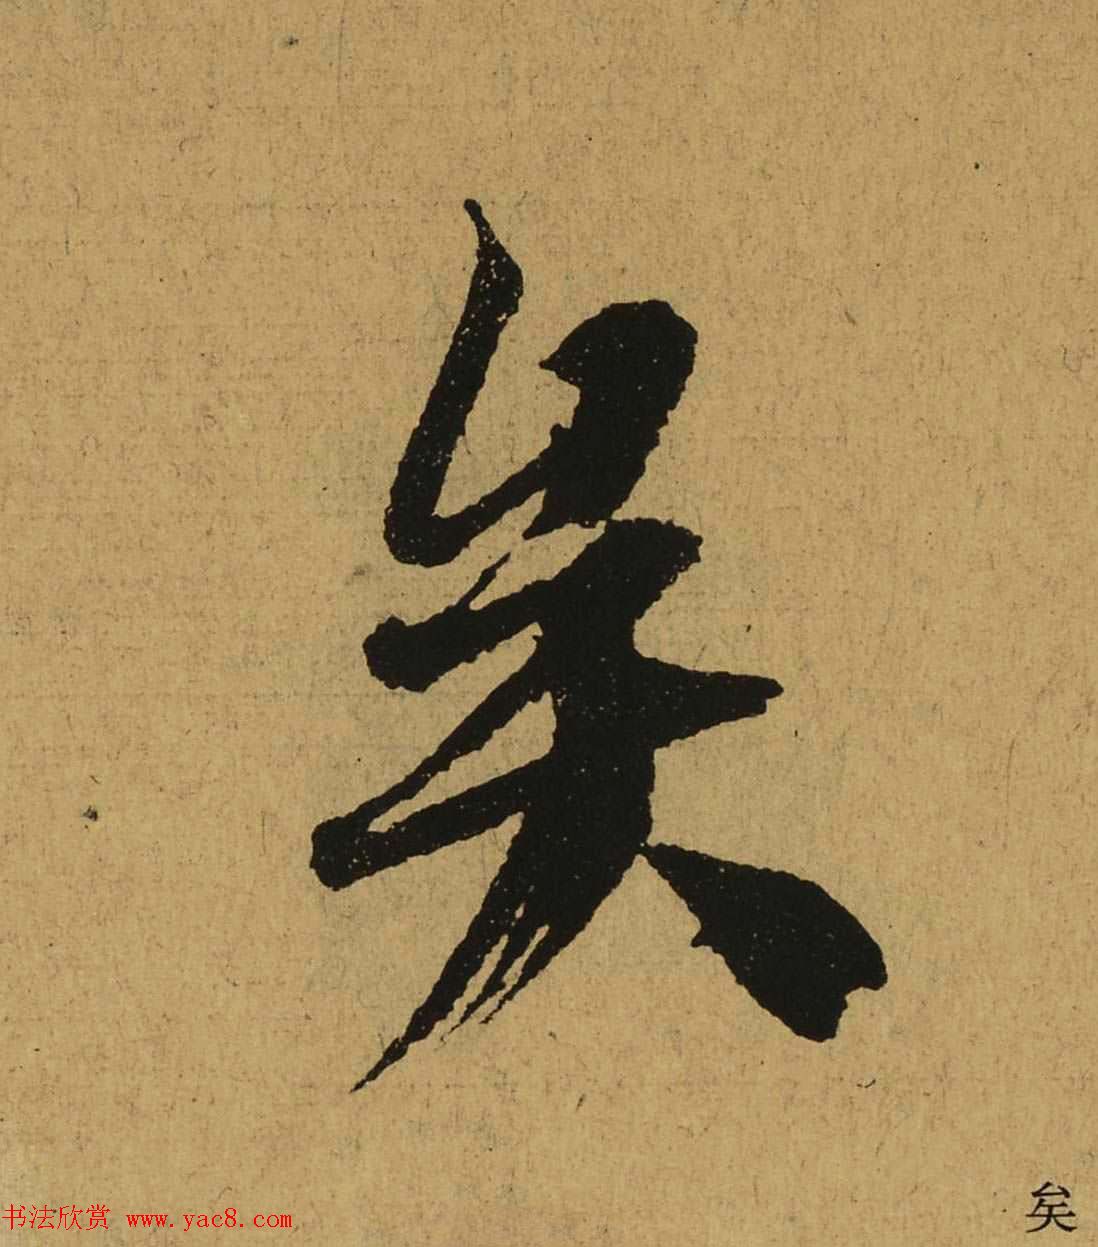 矣
书法欣赏 www.yac8.com
矣